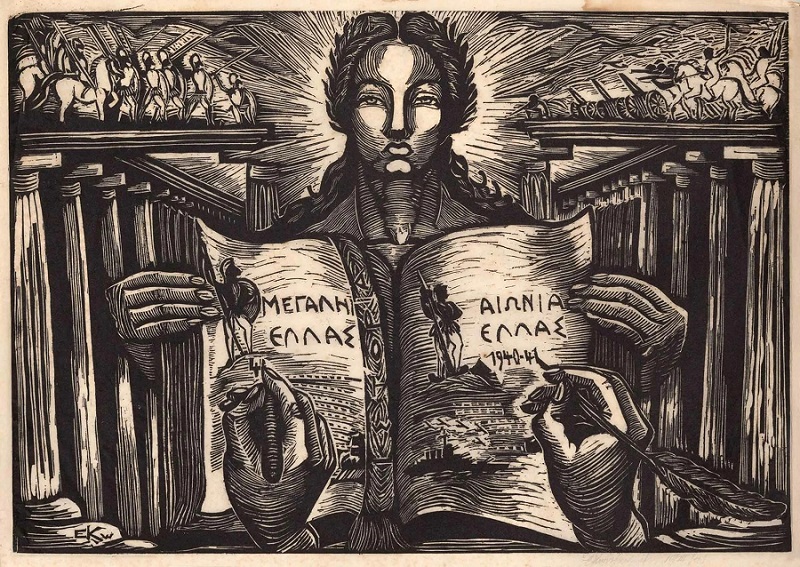 ΜΕΓΑΛΗ
ΕΛΛΑΣ
ΑΙΩΝΙΑ
ΕΛΛΑΣ
1940-41
EK